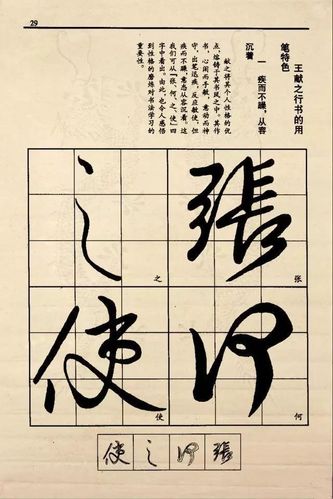 29
王献之行书的用
笔特色
一 疾而不躁，从容
沉着
献之将其个人性格的优
点，熔铸于其书风之中。其作
书，心闲而手敏，意动而神
守，出笔迅疾，反应敏使，但
疾而不躁，意态从容沉着。这
我们可从「张、何、之、使」四
字中看出。由此，也令人感悟
到性格的磨炼对书法学习的
重要性。
張
张
何
何
之
之
使
使
張何之使